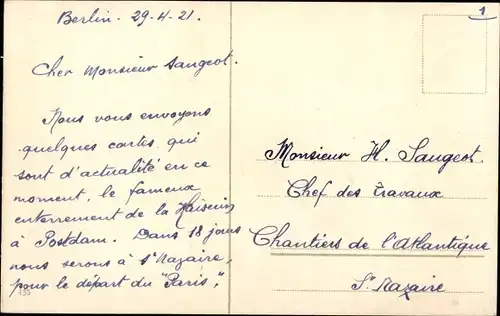 1
Berlin. 29-4-21.
Cher Monsieur Saugeot.
Nous vous envoyons
quelques cartes qui
sont d'actualité en ce
moment, le fameux
enterrement de la Kaiserin
à Postdam. Dans 18 jours
nous serons à St Nazaire,
pour le départ du "Paris",
495
Monsieur H. Saugeot.
Chef des Travaux
Chantiers de l'Atlantique
St. Nazaire